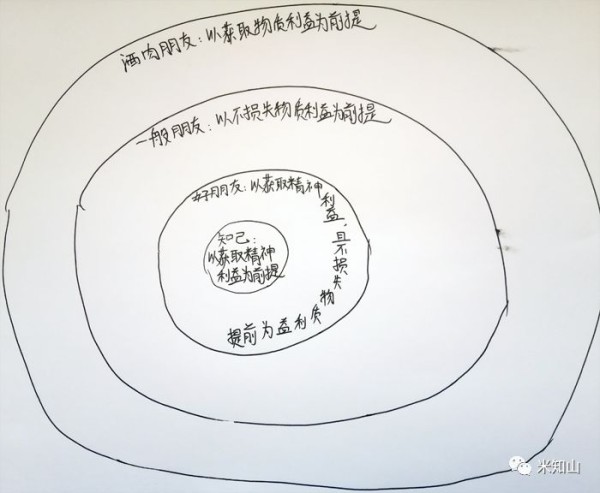 酒肉朋友：以获取物质利益为前提
一般朋友：以不损失物质利益为前提
好朋友：以获取精神利益，且不损失物质利益为前提
知己：
以获取精神
利益为前提
米知山